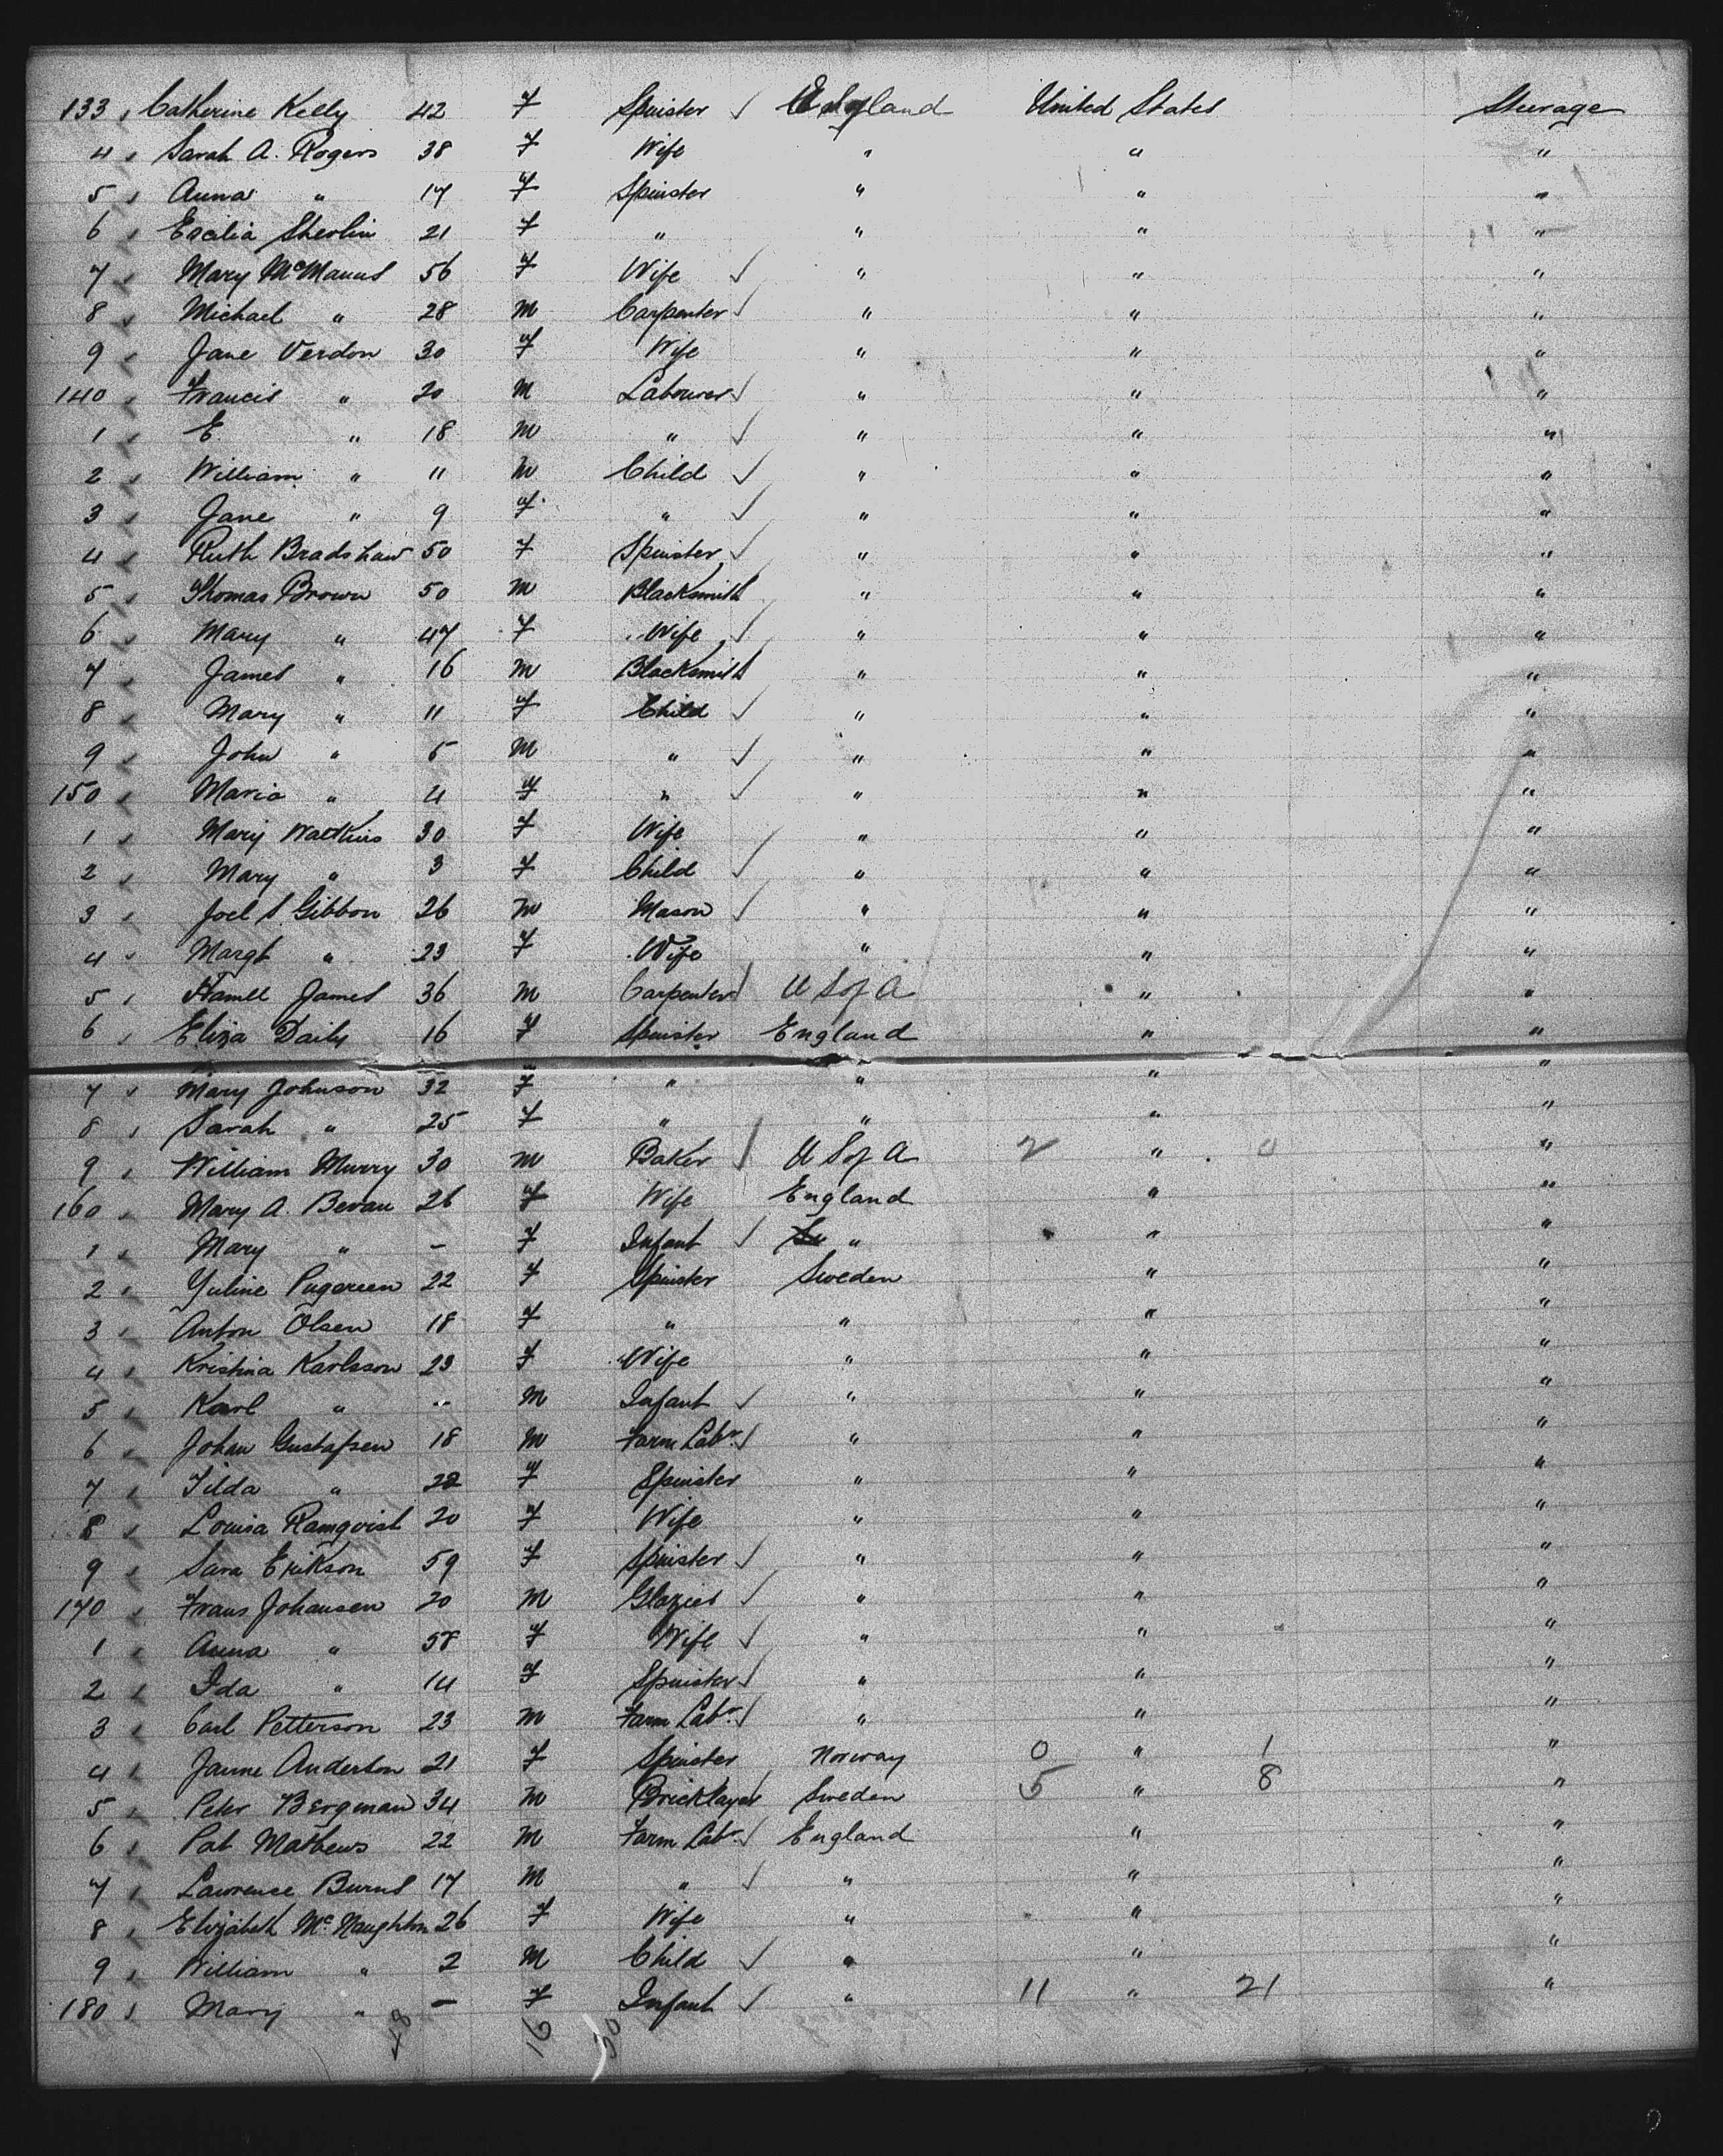 133 Catherine Kelly 42 f Spinster England United States Steerage
4 Sarah A. Rogers 38 f Wife " " "
5 Anna " 17 f Spinster " " "
6 Sherlin 21 f " " " "
7 Mary McManus 56 f Wife " " "
8 Michael " 28 m Carpenter " " "
9 Jane Verdon 30 f Wife " " "
140 Francis " 20 m Labourer " " "
1 E. " 18 m " " " "
2 William " 11 m Child " " "
3 Jane " 9 f " " " "
4 Ruth Bradshaw 50 f Spinster " " "
5 Thomas Brown 50 m Blacksmith " " "
6 Mary " 47 f Wife " " "
7 James " 16 m Blacksmith " " "
8 Mary " 11 f Child " " "
9 John " 5 m " " " "
150 Maria " 4 f " " " "
1 Mary Watkins 30 f Wife " " "
2 Mary " 3 f Child " " "
3 Joel S. Gibbon 26 m Mason " " "
4 Margt " 23 f Wife " " "
5 James 36 m Carpenter U S of A " "
6 Eliza Daily 16 f Spinster England " "
7 Mary Johnson 32 f " " " "
8 Sarah " 25 f " " " "
9 William Murry 30 m Baker U S of A 2 " 0 "
160 Mary A. Bevan 26 f Wife England " "
1 Mary " - f Infant " " "
2 Yuline 22 f Spinster Sweden " "
3 Anton Olsen 18 f " " " "
4 Kristina Karlsson 23 f Wife " " "
5 Karl " - m Infant " " "
6 Johan Gustafsen 18 m Farm Labr. " " "
7 Tilda " 22 f Spinster " " "
8 Louisa Ramqvist 20 f Wife " " "
9 Sara Erikson 59 f Spinster " " "
170 Frans Johansen 20 m Glazier " " "
1 Anna " 58 f Wife " " "
2 Ida " 14 f Spinster " " "
3 Carl Petterson 23 m Farm Labr. " " "
4 Janne Anderson 21 f Spinster Norway 0 " 1 "
5 Peter Bergman 34 m Bricklayer Sweden 5 " 8 "
6 Pat Mathews 22 m Farm Labr. England " "
7 Lawrence Burns 17 m " " " "
8 Elizabeth McNaughton 26 f Wife " " "
9 William " 2 m Child " " "
180 Mary " - f Infant " 11 " 21 "
48 16